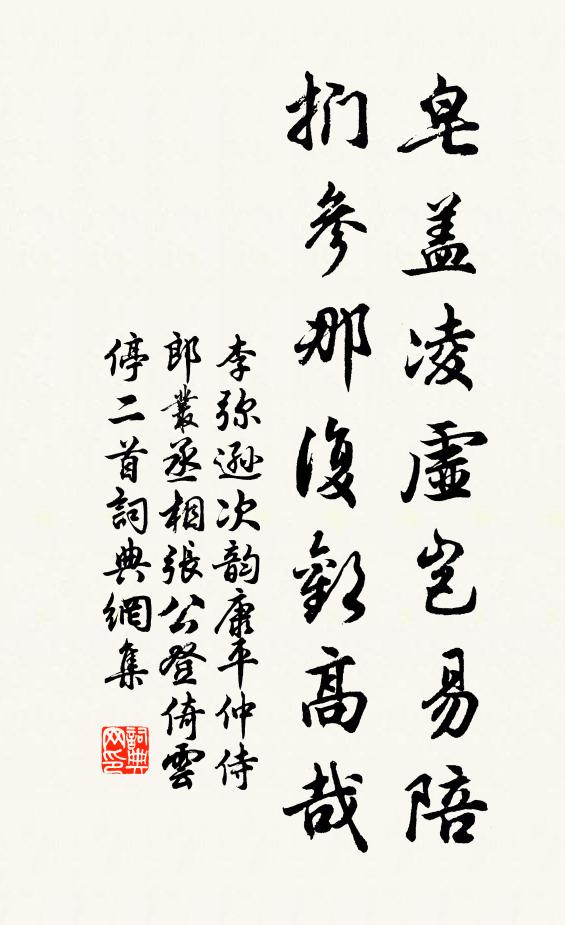 皂盖凌虛岂易陪
捫參那復歎高哉
李弥遜次韵康平仲侍
郎叢丞相張公登倚雲
停二首詞典網集
詞典
网印